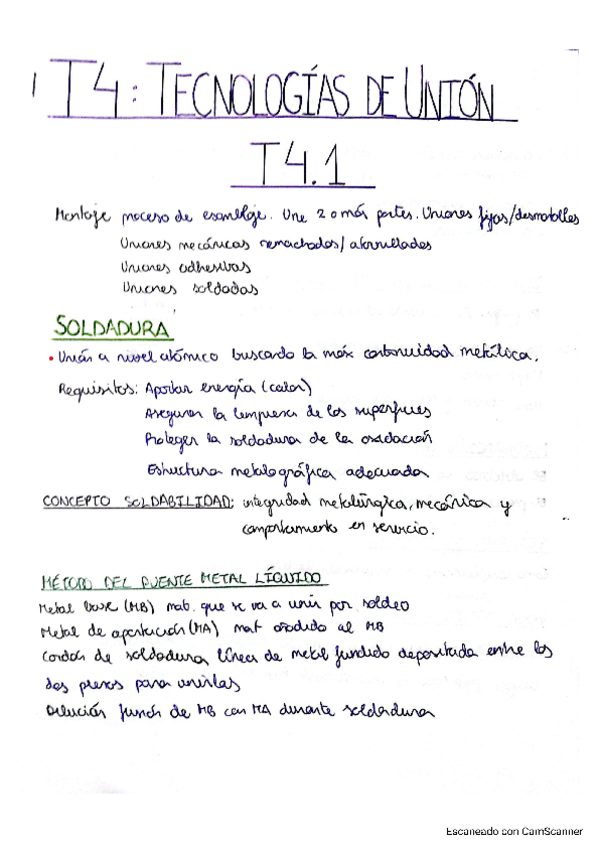 T4: TECNOLOGÍAS DE UNIÓN
T4.1
Montaje proceso de ensamblaje. Une 2 o más partes. Uniones fijas/desmontables
Uniones mecánicas remachados/atornillados
Uniones adhesivas
Uniones soldadas
SOLDADURA
• Unión a nivel atómico buscando la máx continuidad metálica.
Requisitos: Aportar energía (calor)
Asegurar la limpieza de las superficies
Proteger la soldadura de la oxidación
Estructura metalográfica adecuada
CONCEPTO SOLDABILIDAD: integridad metalúrgica, mecánica y
comportamiento en servicio.
MÉTODO DEL PUENTE METAL LÍQUIDO
Metal base (MB) mat. que se va a unir por soldeo
Metal de aportación (MA) mat añadido al MB
Cordón de soldadura línea de metal fundido depositada entre las
dos piezas para unirlas
Dilución fusión de MB con MA durante soldadura
Escaneado con CamScanner